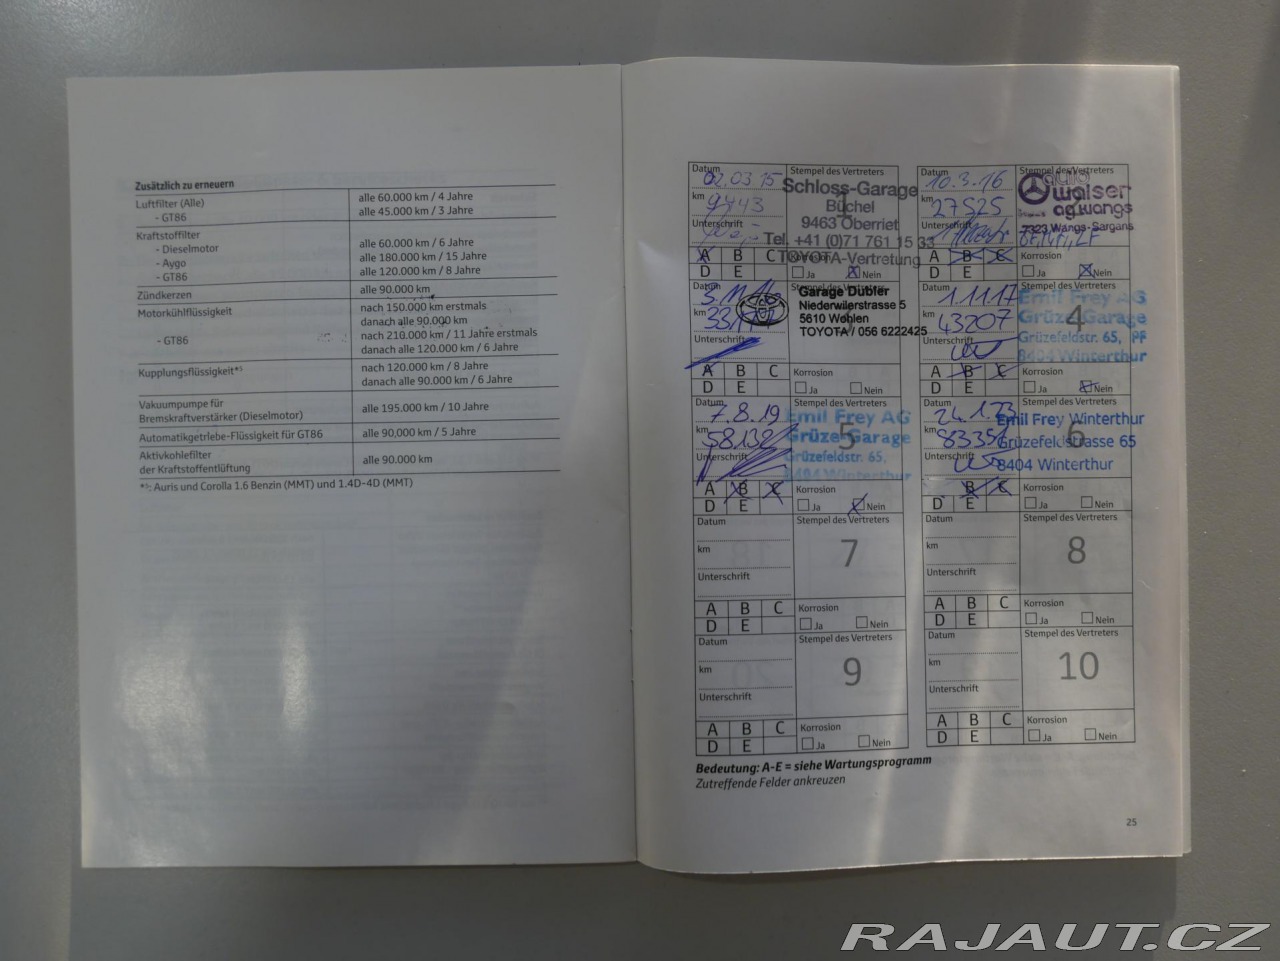 Zusätzlich zu erneuern
Luftfilter (Alle)
- GT86
alle 60.000 km / 4 Jahre
alle 45.000 km / 3 Jahre
Kraftstoffilter
- Dieselmotor
- Aygo
- GT86
alle 60.000 km / 6 Jahre
alle 180.000 km / 15 Jahre
alle 120.000 km / 8 Jahre
Zündkerzen
alle 90.000 km
Motorkühlflüssigkeit
- GT86
nach 150.000 km erstmals
danach alle 90.000 km
nach 210.000 km / 11 Jahre erstmals
danach alle 120.000 km / 6 Jahre
Kupplungsflüssigkeit*⁾
nach 120.000 km / 8 Jahre
danach alle 90.000 km / 6 Jahre
Vakuumpumpe für
Bremskraftverstärker (Dieselmotor)
alle 195.000 km / 10 Jahre
Automatikgetriebe-Flüssigkeit für GT86
alle 90,000 km / 5 Jahre
Aktivkohlefilter
der Kraftstoffentlüftung
alle 90.000 km
*⁾: Auris und Corolla 1.6 Benzin (MMT) und 1.4D-4D (MMT)
Datum
02.03 15
km
9443
Unterschrift
Stempel des Vertreters
Schloss-Garage
Büchel
9463 Oberriet
Tel. +41 (0)71 761 15 33
TOYOTA-Vertretung
A B C
D E
Korrosion
Ja Nein
Datum
10.3.16
km
27525
Unterschrift
Stempel des Vertreters
auto
walser
ag wangs
7323 Wangs-Sargans
A B C
D E
Korrosion
Ja Nein
Datum
km
Unterschrift
Garage Dubler
Niederwilerstrasse 5
5610 Wohlen
TOYOTA / 056 6222425
A B C
D E
Korrosion
Ja Nein
Datum
1.11.17
km
43207
Unterschrift
Stempel des Vertreters
4
Emil Frey AG
Grüze-Garage
Grüzefeldstr. 65,
8404 Winterthur
A B C
D E
Korrosion
Ja Nein
Datum
7.8.19
km
58132
Unterschrift
Stempel des Vertreters
5
Emil Frey AG
Grüze-Garage
Grüzefeldstr. 65,
8404 Winterthur
A B C
D E
Korrosion
Ja Nein
Datum
24.1.23
km
83356
Unterschrift
Stempel des Vertreters
6
Emil Frey Winterthur
Grüzefeldstrasse 65
8404 Winterthur
B C
D E
Korrosion
Ja Nein
Datum
km
Unterschrift
Stempel des Vertreters
7
A B C
D E
Korrosion
Ja Nein
Datum
km
Unterschrift
Stempel des Vertreters
8
A B C
D E
Korrosion
Ja Nein
Datum
km
Unterschrift
Stempel des Vertreters
9
A B C
D E
Korrosion
Ja Nein
Datum
km
Unterschrift
Stempel des Vertreters
10
A B C
D E
Korrosion
Ja Nein
Bedeutung: A-E = siehe Wartungsprogramm
Zutreffende Felder ankreuzen
25
RAJAUT.CZ